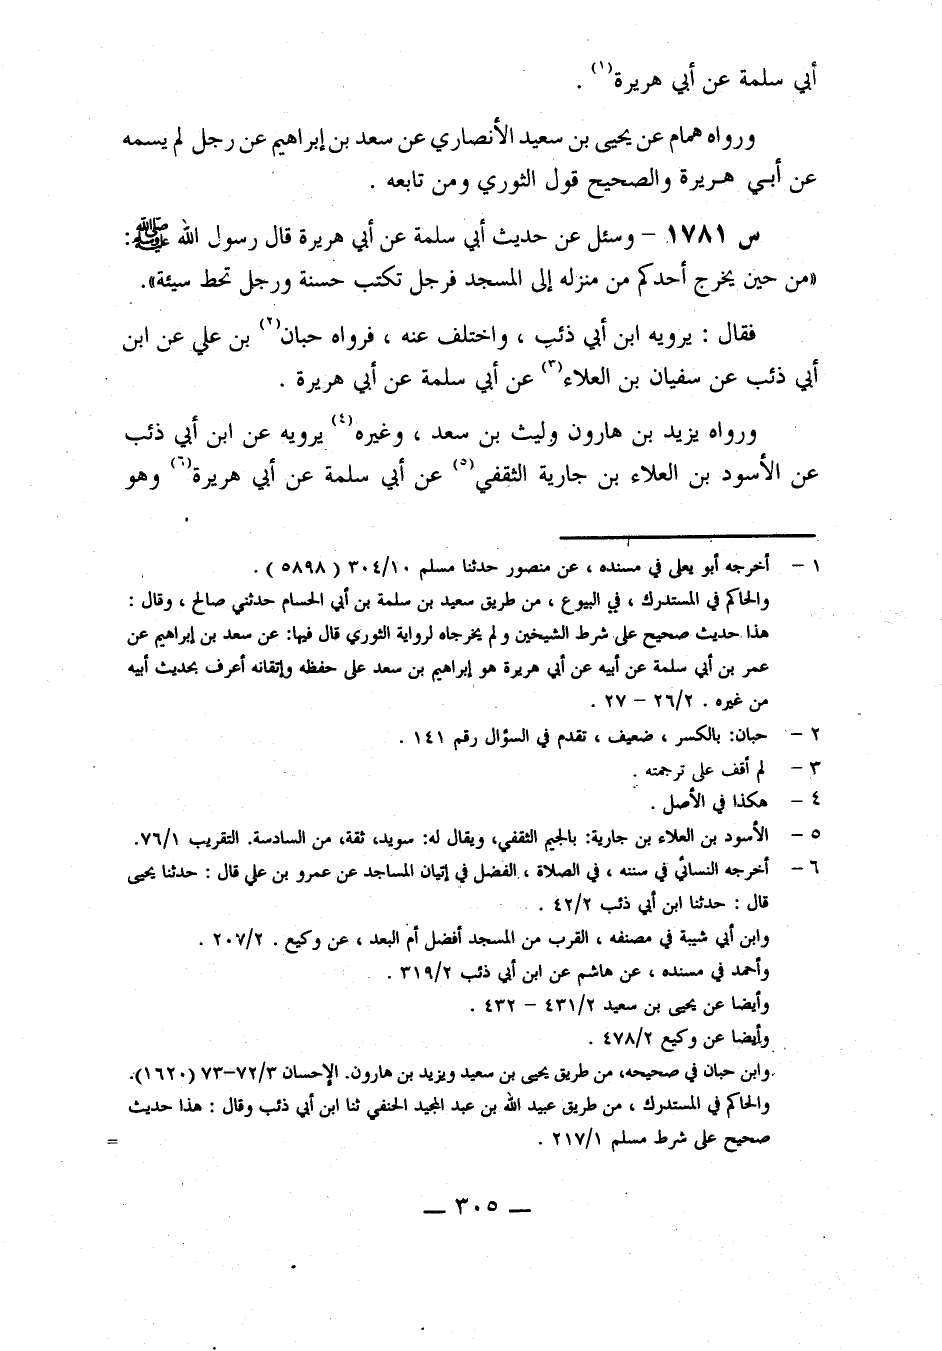 أبي سلمة عن أبي هريرة(١) .
ورواه همام عن يحيى بن سعيد الأنصاري عن سعد بن إبراهيم عن رجل لم يسمه
عن أبـي هـريرة والصحيح قول الثوري ومن تابعه .
س ١٧٨١ - وسئل عن حديث أبي سلمة عن أبي هريرة قال رسول الله ﷺ:
«من حين يخرج أحدكم من منزله إلى المسجد فرجل تكتب حسنة ورجل تحط سيئة».
فقال : يرويه ابن أبي ذئب ، واختلف عنه ، فرواه حبان(٢) بن علي عن ابن
أبي ذئب عن سفيان بن العلاء(٣) عن أبي سلمة عن أبي هريرة .
ورواه يزيد بن هارون وليث بن سعد ، وغيره(٤) يرويه عن ابن أبي ذئب
عن الأسود بن العلاء بن جارية الثقفي(٥) عن أبي سلمة عن أبي هريرة(٦) وهو
١ - أخرجه أبو يعلى في مسنده ، عن منصور حدثنا مسلم ٣٠٤/١٠ ( ٥٨٩٨ ) .
والحاكم في المستدرك ، في البيوع ، من طريق سعيد بن سلمة بن أبي الحسام حدثني صالح ، وقال :
هذا حديث صحيح على شرط الشيخين ولم يخرجاه لرواية الثوري قال فيها: عن سعد بن إبراهيم عن
عمر بن أبي سلمة عن أبيه عن أبي هريرة هو إبراهيم بن سعد على حفظه وإتقانه أعرف بحديث أبيه
من غيره . ٢٦/٢ - ٢٧ .
٢ - حبان: بالكسر ، ضعيف ، تقدم في السؤال رقم ١٤١ .
٣ - لم أقف على ترجمته .
٤ - هكذا في الأصل .
٥ - الأسود بن العلاء بن جارية: بالجيم الثقفي، ويقال له: سويد، ثقة، من السادسة. التقريب ٧٦/١.
٦ - أخرجه النسائي في سننه ، في الصلاة ، الفضل في إتيان المساجد عن عمرو بن علي قال : حدثنا يحيى
قال : حدثنا ابن أبي ذئب ٤٢/٢ .
وابن أبي شيبة في مصنفه ، القرب من المسجد أفضل أم البعد ، عن وكيع . ٢٠٧/٢ .
وأحمد في مسنده ، عن هاشم عن ابن أبي ذئب ٣١٩/٢ .
وأيضا عن يحيى بن سعيد ٤٣١/٢ - ٤٣٢ .
وأيضا عن وكيع ٤٧٨/٢ .
وابن حبان في صحيحه، من طريق يحيى بن سعيد ويزيد بن هارون. الإحسان ٧٢/٣-٧٣ (١٦٢٠).
والحاكم في المستدرك ، من طريق عبيد الله بن عبد المجيد الحنفي ثنا ابن أبي ذئب وقال : هذا حديث
صحيح على شرط مسلم ٢١٧/١ . =
— ٣٠٥ —